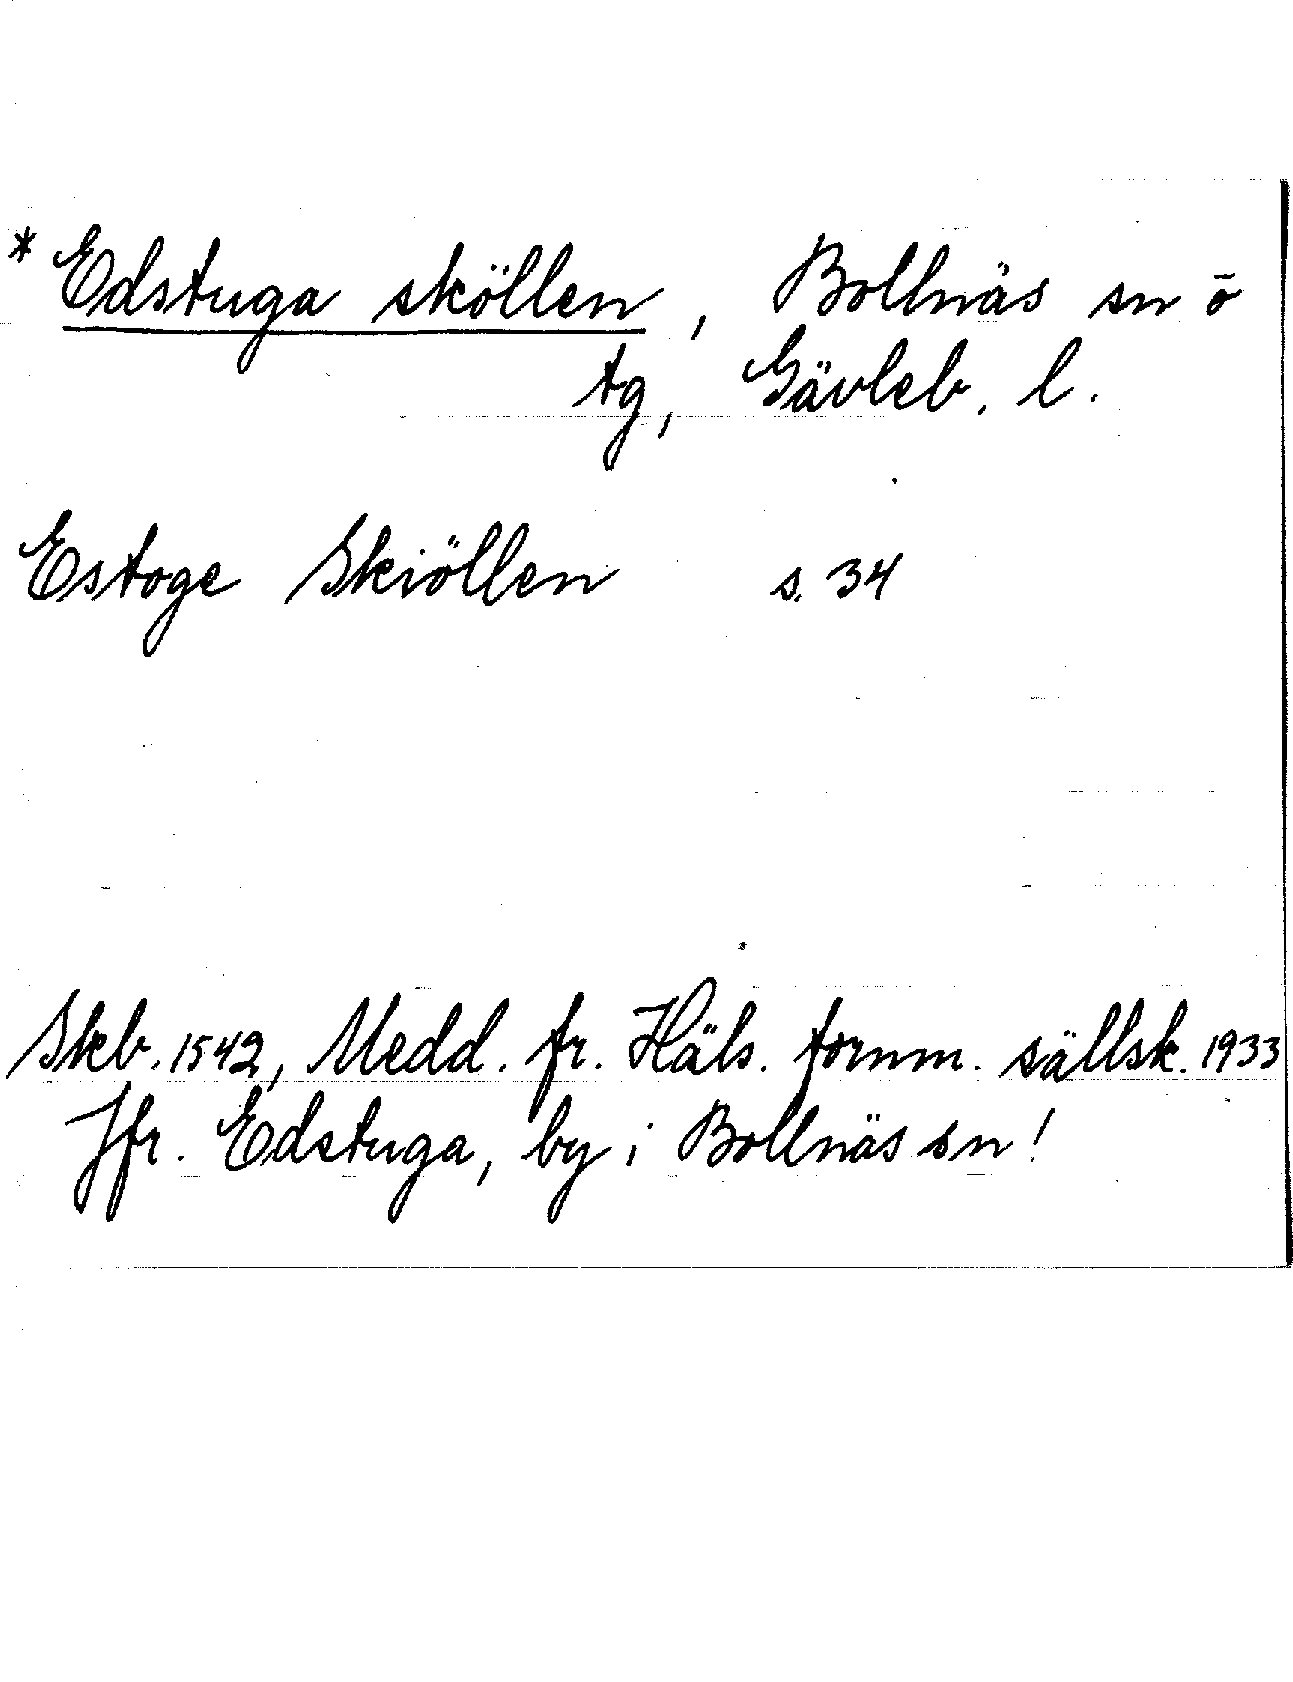 * Edstuga sköllen, Bollnäs sn o
tg, Gävleb. l.
Estoge Skiöllen s. 34
Skb. 1542, Medd. fr. Häls. fornm. sällsk. 1933
Jfr. Edstuga, by i Bollnäs sn!